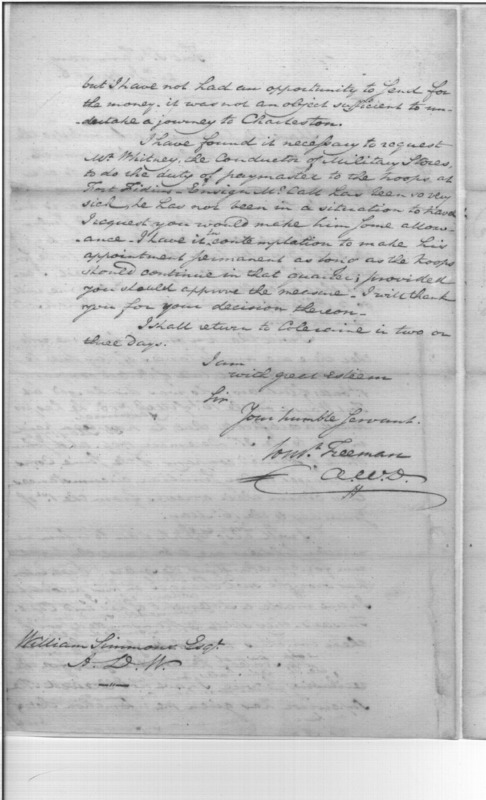 but I have not had an opportunity to send for
the money. it was not an object sufficient to un-
dertake a journey to Charleston.
I have found it necessary to request
Mr. Whitney, the Conductor of Military Stores,
to do the duty of paymaster to the troops at
Fort Fidius. Ensign McCall has been so very
sick he has not been in a situation to
I request you would make him some allow-
ance. I have it in contemplation to make his
appointment permanent as long as the troops
should continue in that quarter; provided
you should approve the measure. I will thank
you for your decision thereon—
I shall return to Coleraine in two or
three days.
I am
with great esteem
Sir
Your humble Servant.
Const. Freeman
A.W.D.
William Simmons Esqr.
A. D. W.